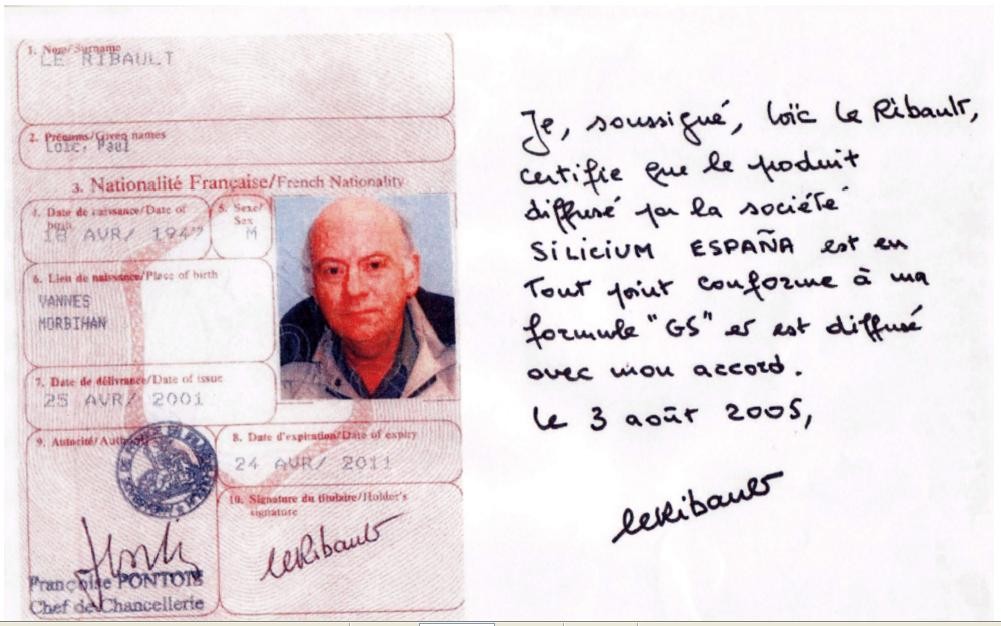 1. Nom/Surname
LE RIBAULT
2. Prénoms/Given names
Loïc, Paul
3. Nationalité Française/French Nationality
4. Date de naissance/Date of birth
18 AVR/ 1947
5. Sexe/Sex
M
6. Lieu de naissance/Place of birth
VANNES
MORBIHAN
7. Date de délivrance/Date of issue
25 AVR/ 2001
8. Date d'expiration/Date of expiry
24 AVR/ 2011
9. Autorité/Authority
Françoise PONTOIS
Chef de Chancellerie
10. Signature du titulaire/Holder's
signature
leRibault
Je, soussigné, Loïc Le Ribault,
certifie que le produit
diffusé par la société
SILICIUM ESPAÑA est en
Tout point conforme à ma
formule "G5" et est diffusé
avec mon accord.
Le 3 août 2005,
leRibault